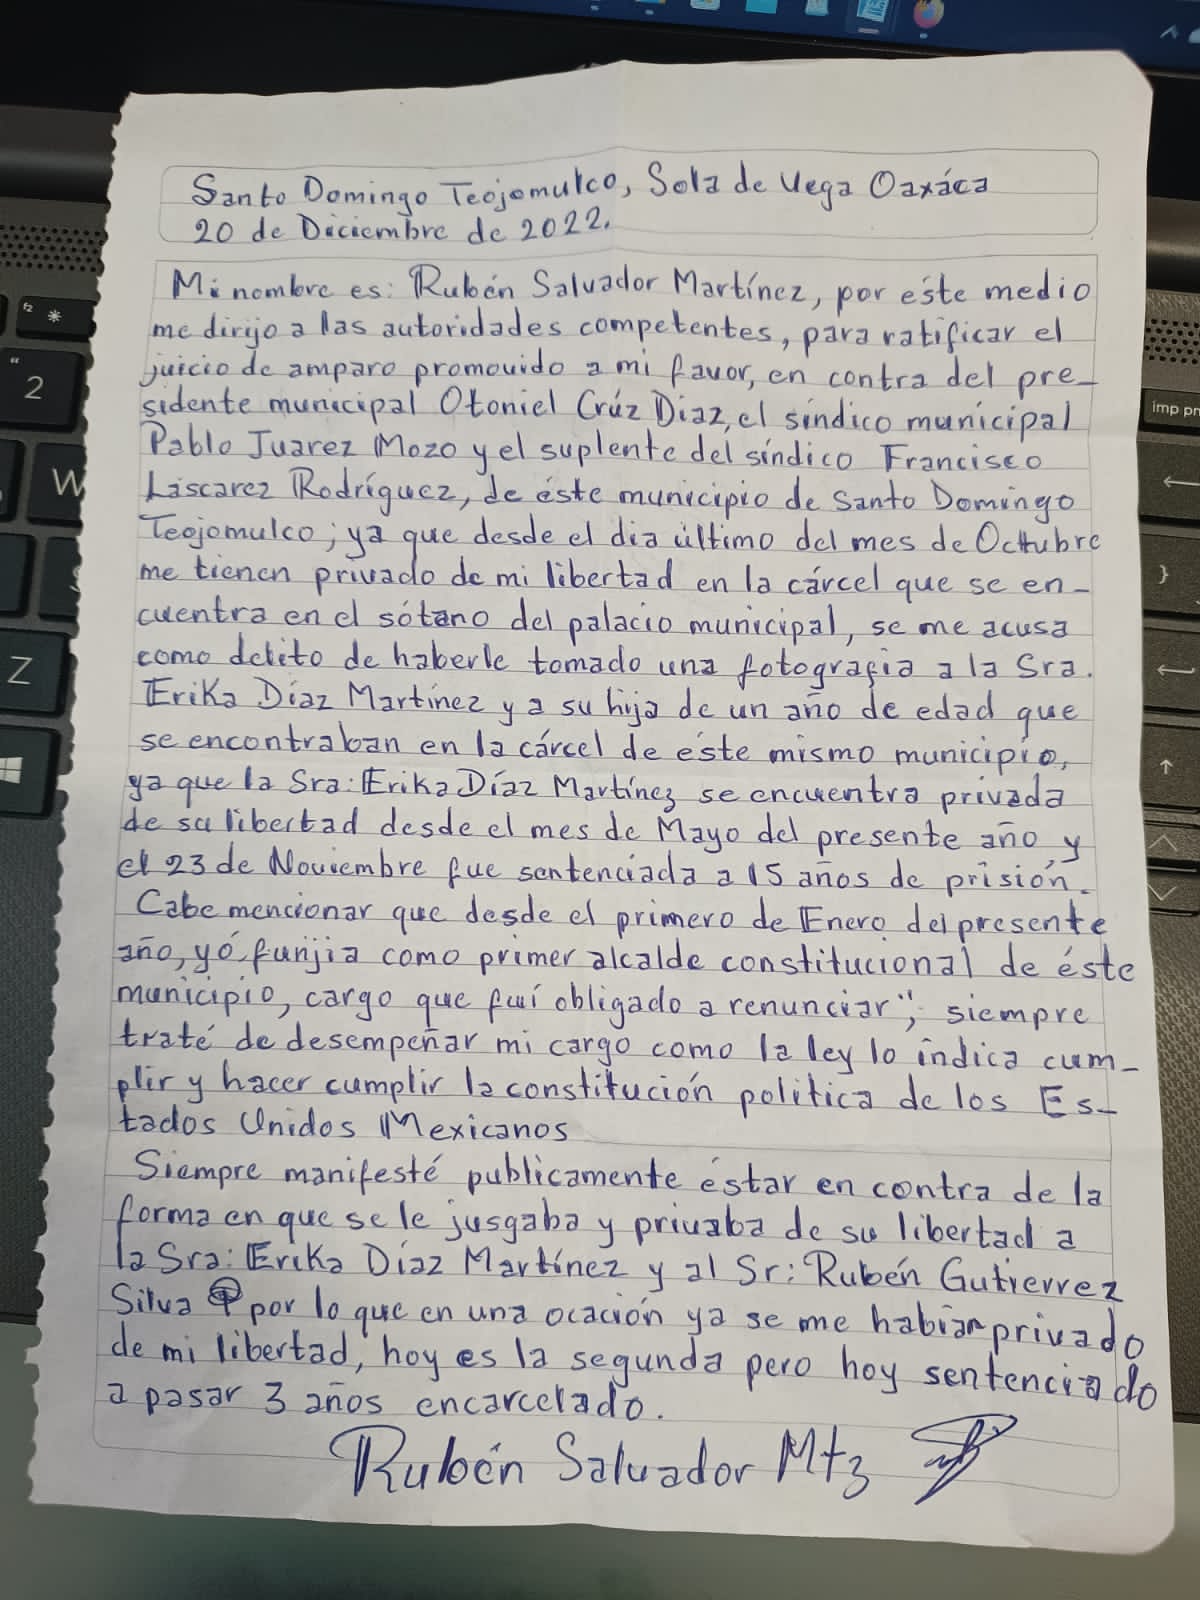 Santo Domingo Teojomulco, Sola de Vega Oaxáca
20 de Diciembre de 2022.
Mi nombre es: Rubén Salvador Martínez, por éste medio
me dirijo a las autoridades competentes, para ratificar el
juicio de amparo promovido a mi favor, en contra del pre-
sidente municipal Otoniel Crúz Díaz, el síndico municipal
Pablo Juarez Mozo y el suplente del síndico Francisco
Láscarez Rodríguez, de éste municipio de Santo Domingo
Teojomulco; ya que desde el día último del mes de Octubre
me tienen privado de mi libertad en la cárcel que se en-
cuentra en el sótano del palacio municipal, se me acusa
como delito de haberle tomado una fotografía a la Sra.
Erika Díaz Martínez y a su hija de un año de edad que
se encontraban en la cárcel de éste mismo municipio,
ya que la Sra: Erika Díaz Martínez se encuentra privada
de su libertad desde el mes de Mayo del presente año y
el 23 de Noviembre fue sentenciada a 15 años de prisión.
Cabe mencionar que desde el primero de Enero del presente
año, yó funjia como primer alcalde constitucional de éste
municipio, cargo que fuí obligado a renunciar", siempre
traté de desempeñar mi cargo como la ley lo indica cum-
plir y hacer cumplir la constitución política de los Es-
tados Unidos Mexicanos
Siempre manifesté publicamente éstar en contra de la
forma en que se le jusgaba y privaba de su libertad a
la Sra: Erika Díaz Martínez y al Sr: Rubén Gutierrez
Silva por lo que en una ocación ya se me habían privado
de mi libertad, hoy es la segunda pero hoy sentenciado
a pasar 3 años encarcelado.
Rubén Salvador Mtz
f2
"
2
W
Z
imp pn
}